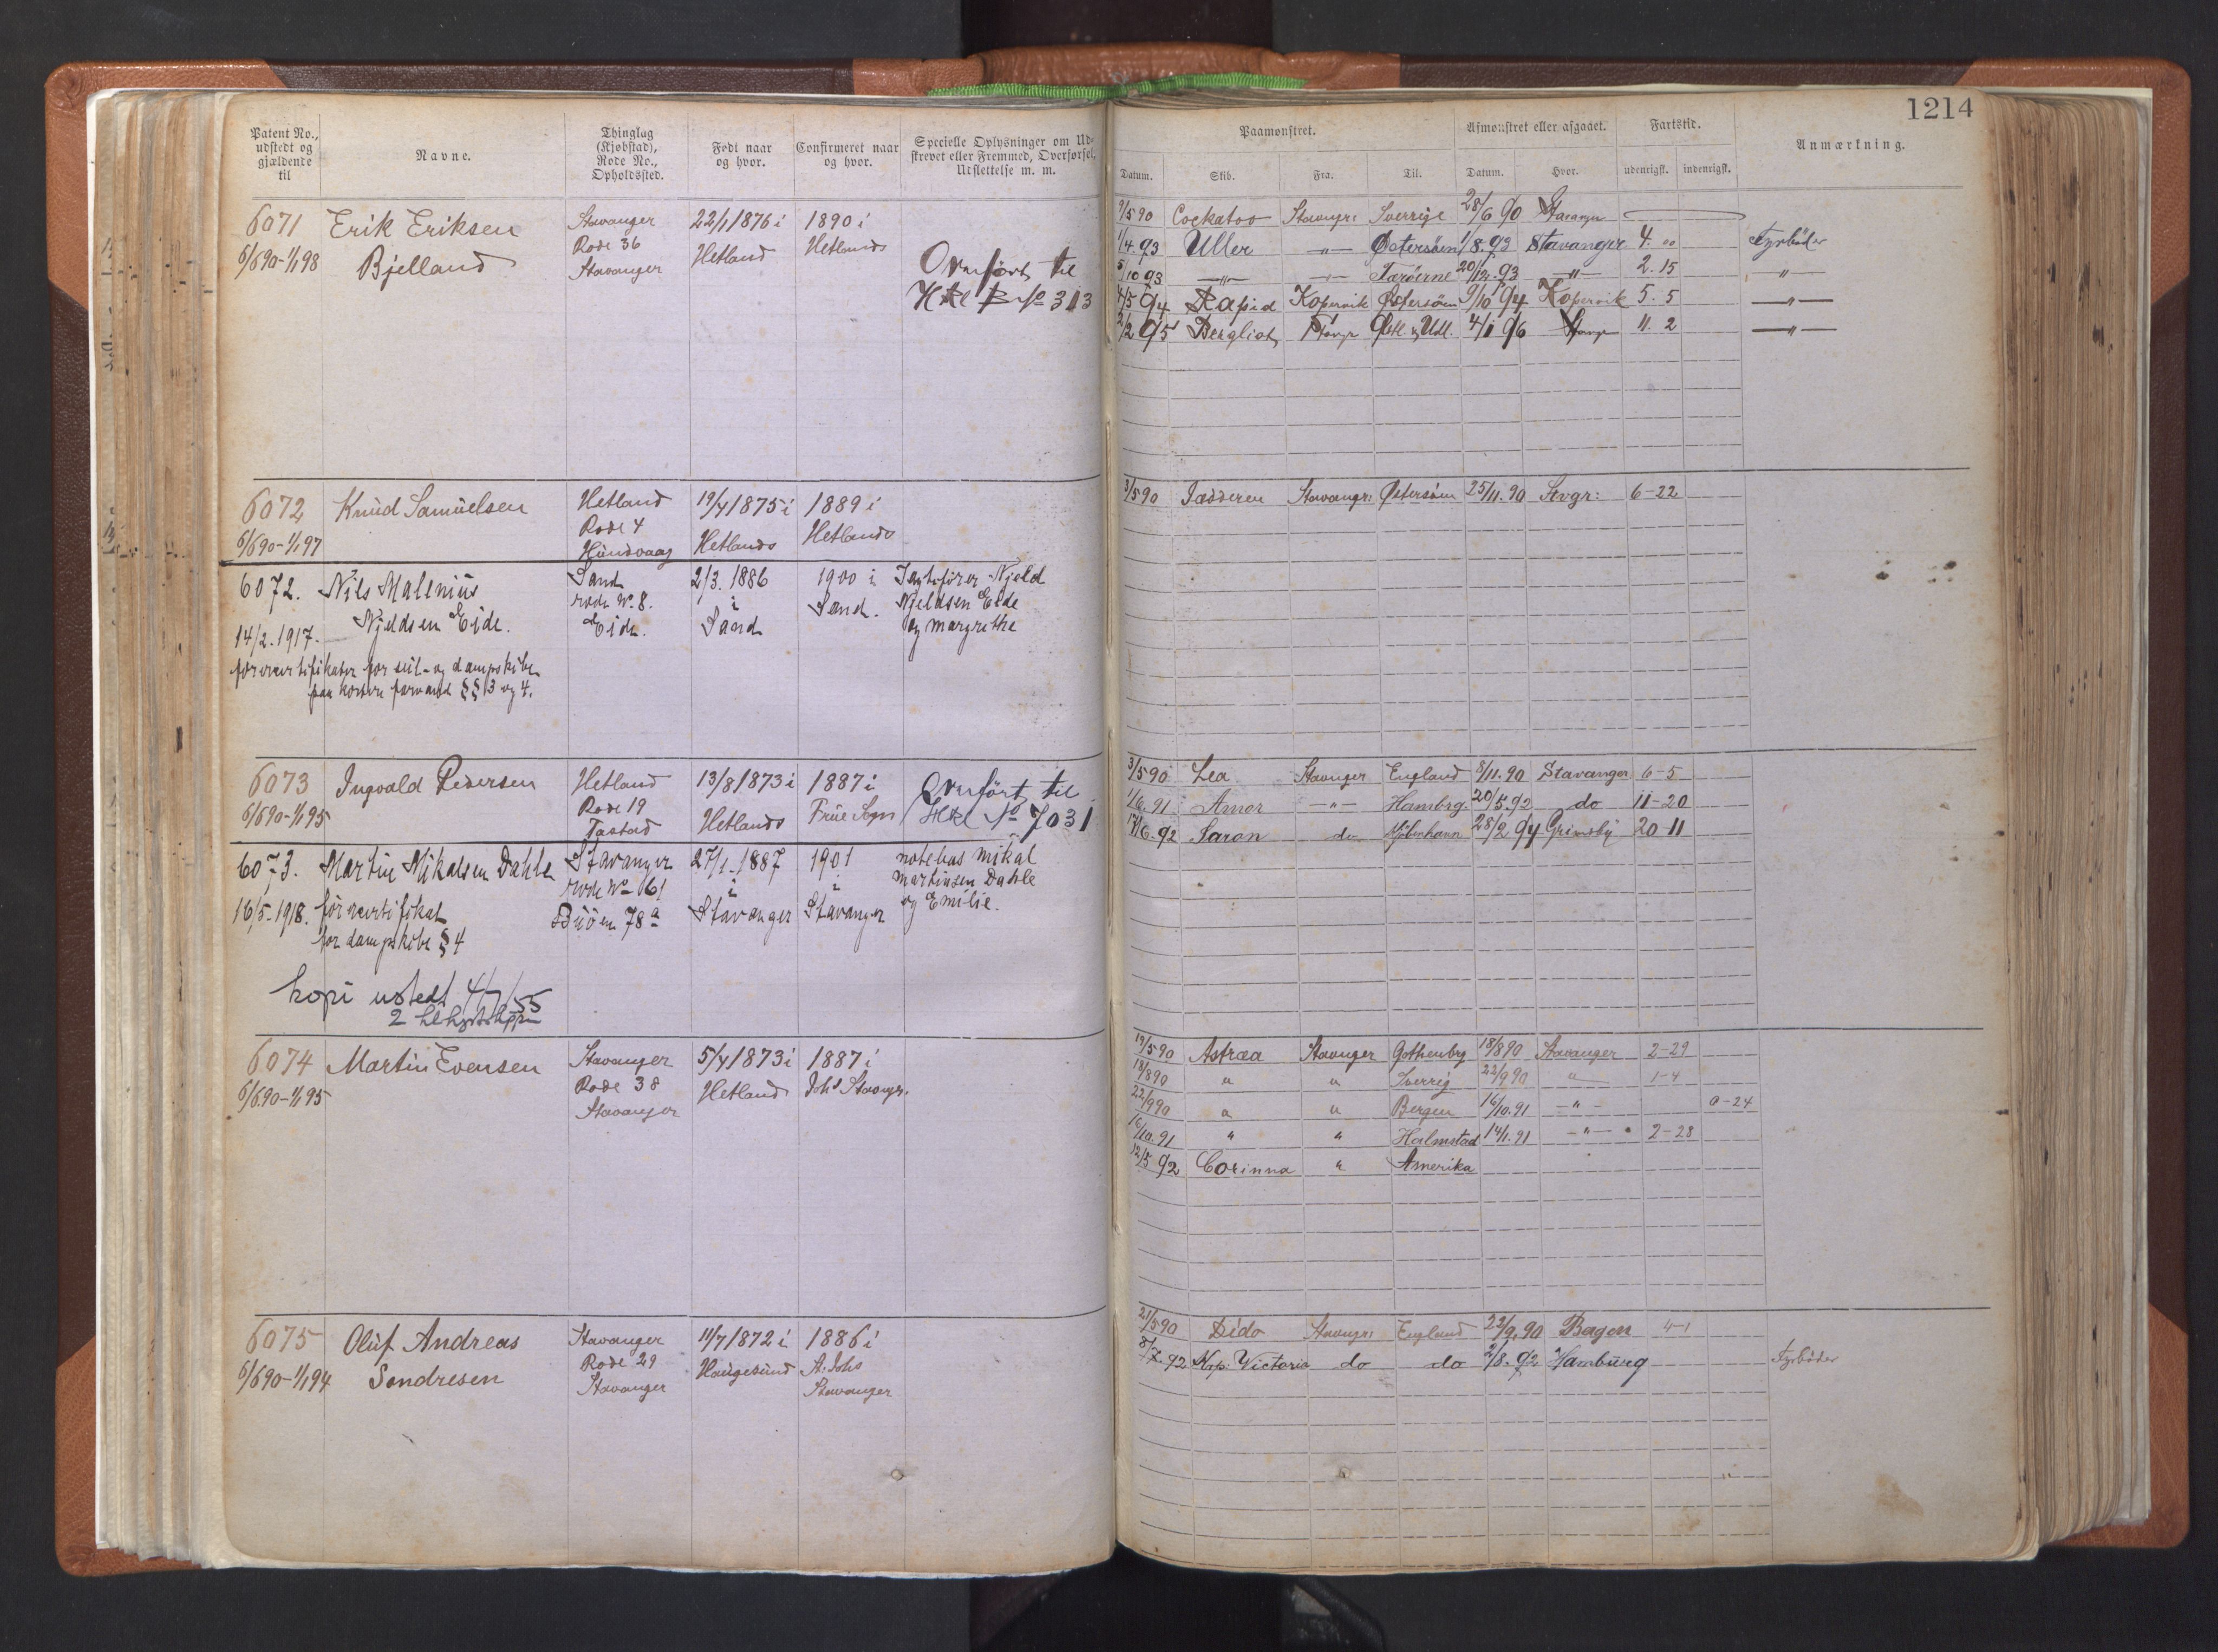 1214
Patent No., udstedt og gjældende til
Navne.
Thinglag (Kjøbstad), Rode No., Opholdssted.
Født naar og hvor.
Confirmeret naar og hvor.
Specielle Oplysninger om Udskrevet eller Fremmed, Overførsel, Udslettelse m. m.
Paamønstret.
Afmønstret eller afgaaet.
Fartstid.
Anmærkning.
Datum. Skib. Fra. Til. Datum. Hvor. udenrigsk. indenrigsk.
6071 Erik Eriksen Stavanger 22/1 1876 i 1890 i
6/6 90-1/1 98 Bjelland Rode 36 Hetland Hetlands
Stavanger
Overført til
Hkl B No 313
9/5 90 Cockatoo Stavangr: Sverrige 28/6 90 Stavanger
1/4.93 Uller -"- Østersøen 1/8.93 Stavanger 4. 00 Fyrbøder
5/10 93 -"- -"- Færøerne 20/12.93 -"- 2.15 -"-
4/5 94 Rapid Kopervik Østersøen 9/10 94 Kopervik 5. 5 -"-
2/2 95 Bergliot Stavgr 4/1 96 Stavgr 11. 2 -"-
6072 Knud Samuelsen Hetland 19/4 1875 i 1889 i
6/6 90-1/1 97 Rode 4 Hetlands Hetlands
Hundvaag
3/5 90 Jædderen Stavangr: Østersøen 25/11.90 Stvgr: 6-22
6072. Nils Mallenius Sand 2/3.1886 1900 i Jagtefører Njeld
14/2.1917. Njeldsen Eide. rode No 8. i Sand. Njeldsen Eide
Eide. Sand og Margrethe
førercertifikater for seil- og dampskibe
paa kortere farvand §§ 3 og 4.
6073 Ingvald Pedersen Hetland 13/8 1873 i 1887 i Overført til
6/6 90-1/1 95 Rode 19 Hetlands Frue Sogn Hkl No 7031
Tastad
3/5 90 Lea Stavnger England 8/11.90 Stavanger 6-5
1/6.91 Amor -"- Hambrg. 20/5.92 do 11-20
17/6.92 Saron do Kjøbenhavn 28/2 94 Grimsby 20-11
6073. Martin Mikalsen Dahle Stavanger 27/1.1887 1901 notebas Mikal
16/5-1918. førercertifikat rode No 61 i i Martinsen Dahle
for dampskibe § 4 Buøen 78a Stavanger Stavanger og Emilie.
kopi ustedt 4/7/55
6074 Martin Evensen Stavanger 5/4 1873 i 1887 i
6/6.90-1/1 95 Rode 38 Hetland Johs Stavngr.
Stavanger
19/5 90 Astræa Stavnger Gothenbrg 18/8 90 Stavanger 2-29
18/8 90 " " Sverrig 22/9 90 " 1-4
22/9 90 " " Bergen 16/10.91 -"- 0-24
16/10.91 " " Halmstad 14/1.91 -"- 2-28
12/5 92 Corinna " Amerika
6075 Oluf Andreas Stavanger 11/7 1872 i 1886 i
6/6 90-1/1 94 Sondresen Rode 29 Haugesund St. Johs
Stavanger Stavanger
21/5 90 Dido Stavngr: England 22/9.90 Bergen 4-1
8/7.92 Victoria do do 2/8.92 Hamburg Fyrbøder